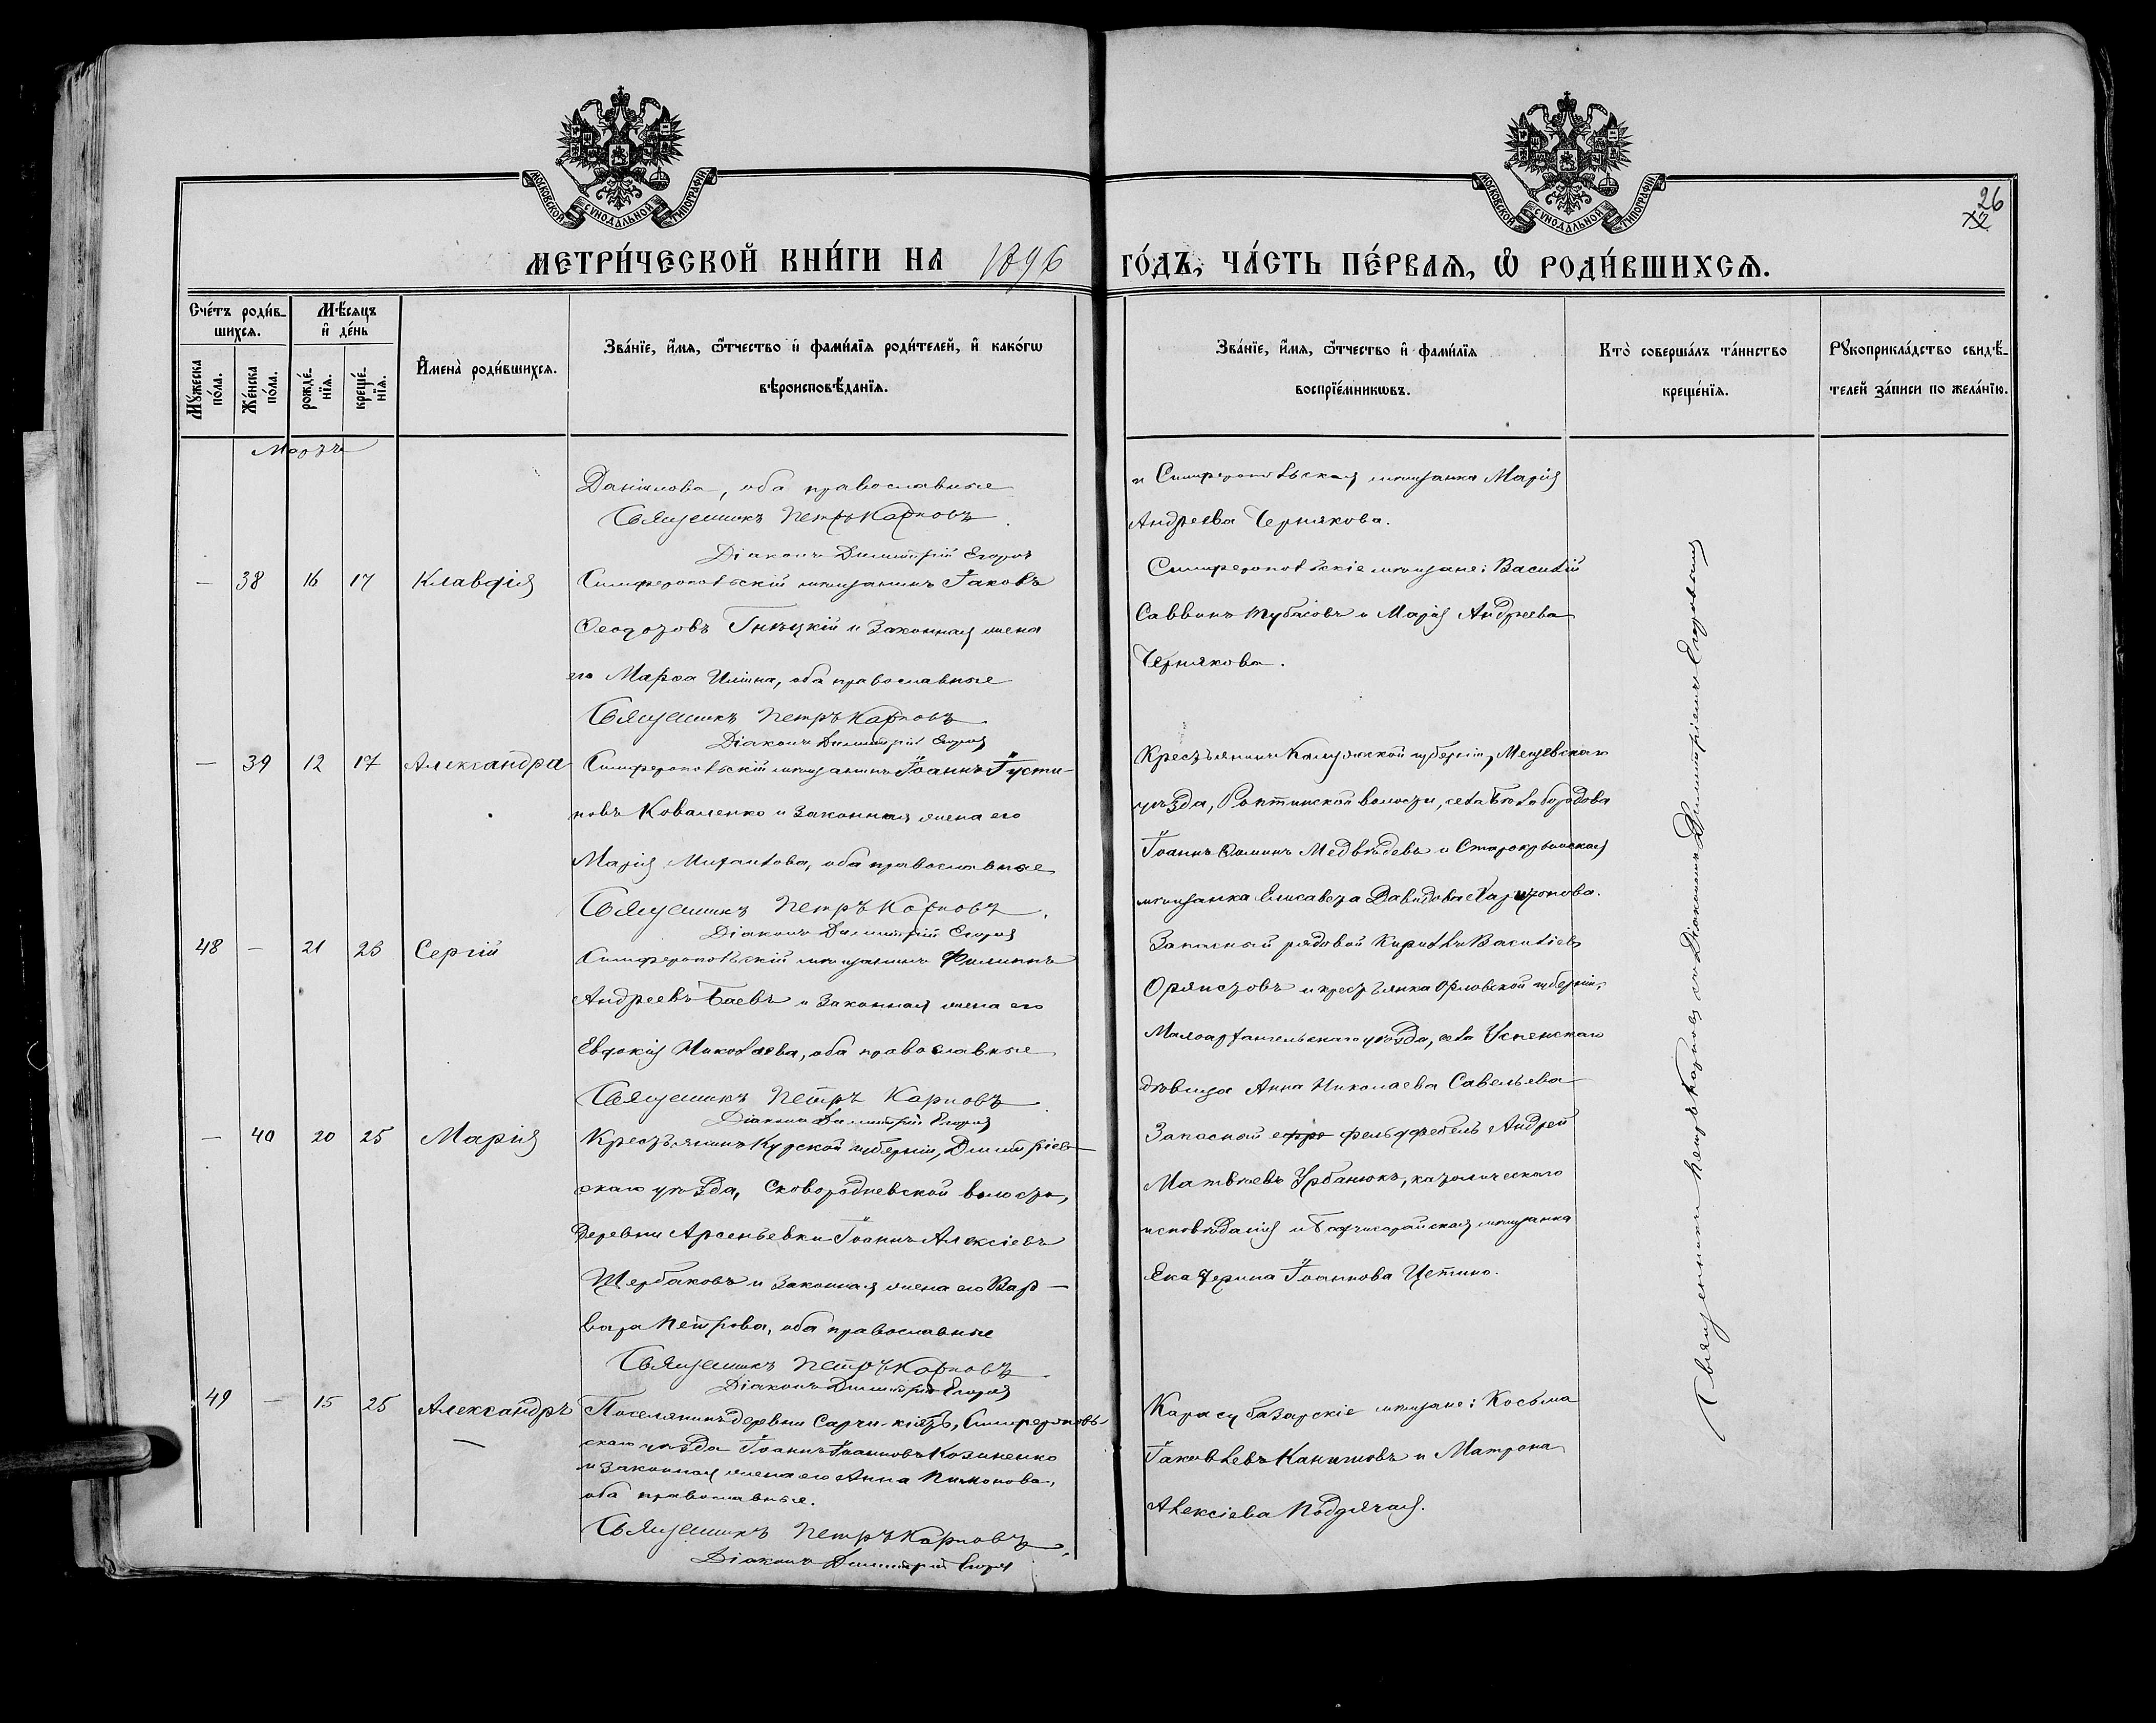 МОСКОВСКОЙ СУНОДАЛЬНОЙ ТИПОГРАФІИ
МОСКОВСКОЙ СУНОДАЛЬНОЙ ТИПОГРАФІИ
26
МЕТРИ́ЧЕСКОЙ КНИ́ГИ НА 1896 ГО́ДЪ, ЧА́СТЬ ПЕ́РВАѦ, Ѡ҆ РОДИ́ВШИХСѦ.
Сче́тъ роди́в-
шихсѧ.
Мꙋжеска по́ла.
Же́нска по́ла.
Мѣ́сѧцъ
и҆ де́нь
рожде́-
нїѧ.
креще́-
нїѧ.
И҆мена̀ роди́вшихсѧ.
Зва́нїе, и҆́мѧ, ѻ҆́тчество и҆ фами́лїѧ роди́телей, и҆ како́гѡ
вѣроисповѣ́данїѧ.
Зва́нїе, и҆́мѧ, ѻ҆́тчество и҆ фами́лїѧ
воспрїе́мникѡвъ.
Кто̀ соверша́лъ та́инство
креще́нїѧ.
Рꙋкоприкла́дство свидѣ́-
телей за́писи по жела́нїю.
Мартъ
Данилова, оба православные
Священникъ Петръ Карповъ
Діаконъ Димитрій Егоровъ
и Симферопольская мѣщанка Марія
Андреева Чернякова.
— 38 16 17 Клавдія
Симферопольскій мѣщанинъ Іаковъ
Ѳеодоровъ Гницкій и законная жена
его Марѳа Ильина, оба православные
Священникъ Петръ Карповъ
Діаконъ Димитрій Егоровъ
Симферопольскіе мѣщане: Василій
Саввинъ и Марія Андреева
Чернякова.
— 39 12 17 Александра
Симферопольскій мѣщанинъ Іоаннъ Іусти-
новъ Коваленко и законная жена его
Марія Михаилова, оба православные
Священникъ Петръ Карповъ
Діаконъ Димитрій Егоровъ
Крестьянинъ Калужской губерніи, Мещевскаго
уѣзда, волости, села
Іоаннъ Ѳоминъ Медвѣдевъ и Старокрымская
мѣщанка Елисавета Давидова Харитонова.
48 — 21 23 Сергій
Симферопольскій мѣщанинъ Филиппъ
Андреевъ Баевъ и законная жена его
Евдокія Николаева, оба православные
Священникъ Петръ Карповъ
Діаконъ Димитрій Егоровъ
Запасный рядовой Кириллъ Васильевъ
и крестьянка Орловской губерніи,
Малоархангельскаго уѣзда, села Успенскаго
дѣвица Анна Николаева Савельева
— 40 20 25 Марія
Крестьянинъ Курской губерніи, Дмитріев-
скаго уѣзда, Сковородневской волости,
деревни Арсеньевки Іоаннъ Алексіевъ
Щербаковъ и законная жена его Вар-
вара Петрова, оба православные
Священникъ Петръ Карповъ
Діаконъ Димитрій Егоровъ
Запасной фельдфебель Андрей
Матвѣевъ Урбанюкъ, католическаго
исповѣданія и Бахчисарайская мѣщанка
Екатерина Іоаннова Цетино.
49 — 15 25 Александръ
Поселянинъ деревни Сарчи-кіятъ, Симферополь-
скаго уѣзда Іоаннъ Іоанновъ Козиненко
и законная жена его Анна Пимонова,
оба православные.
Священникъ Петръ Карповъ
Діаконъ Димитрій Егоровъ
Карасубазарскіе мѣщане: Косьма
Іаковлевъ Канишовъ и Матрона
Алексіева
Священникъ Петръ Карповъ съ Діакономъ Димитріемъ Егоровымъ